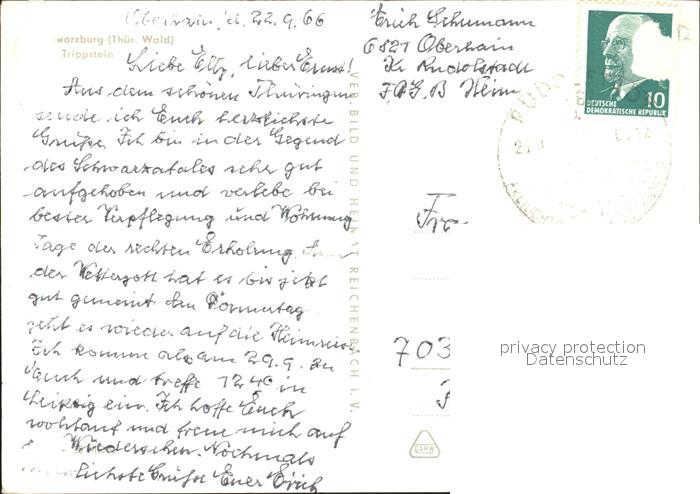 Oberhain, d. 22.9.66
warzburg (Thür. Wald)
Trippstein
Liebe Elly, lieber Ernst!
Aus dem schönen Thüringen
sende ich Euch herzlichste
Grüße. Ich bin in der Gegend
des Schwarzatales sehr gut
aufgehoben und verlebe bei
bester Verpflegung und Wohnung
Tage der rechten Erholung.
der Wettergott hat es bis jetzt
gut gemeint. Am Donnerstag
geht es wieder auf die Heimreise
Ich komme also am 29.9. zu
Euch und treffe 12 40 in
Leipzig ein. Ich hoffe Euch
wohlauf und freue mich auf
Wiedersehen. Nochmals
lichste Grüße Euer Erich
VEB BILD UND HEIMAT REICHENBACH I. V.
Erich Schumann
6821 Oberhain
Kr. Rudolstadt
Heim
DEUTSCHE
DEMOKRATISCHE REPUBLIK
10
RUDO
703
privacy protection
Datenschutz